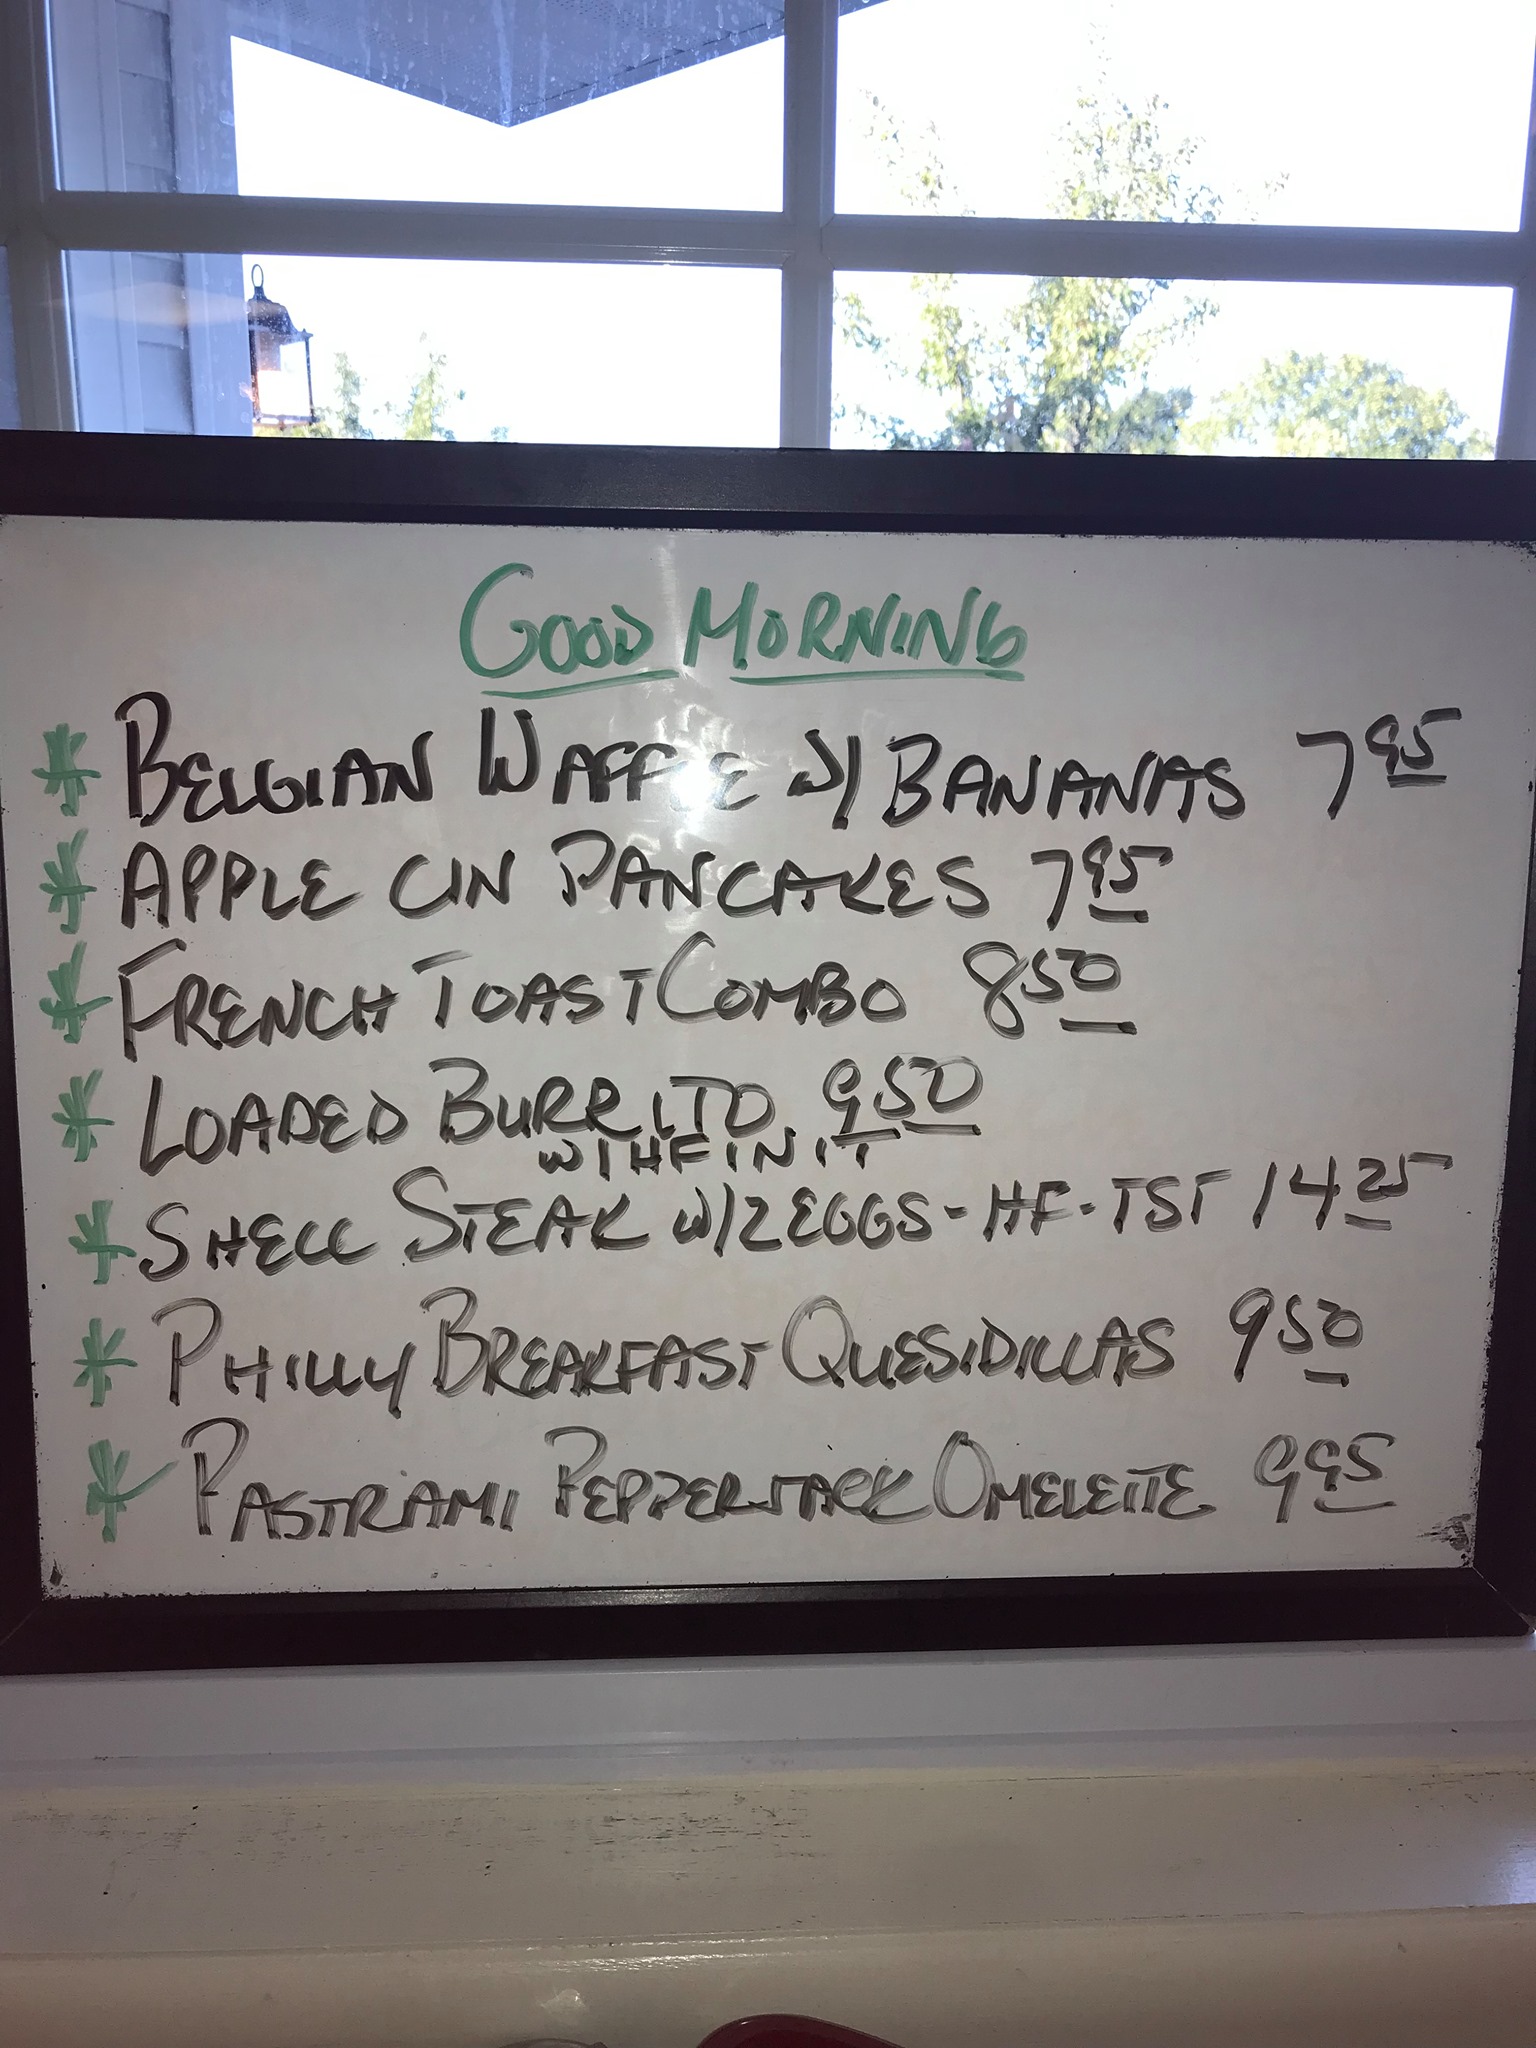 GOOD MORNING
* BELGIAN WAFFLE W/ BANANAS 7 95
* APPLE CIN PANCAKES 7 95
* FRENCH TOAST COMBO 8 50
* LOADED BURRITO 9 50
W/HF IN IT
* SHELL STEAK W/2 EGGS - HF - TST 14 25
* PHILLY BREAKFAST QUESIDILLAS 9 50
* PASTRAMI PEPPERJACK OMELETTE 9 95